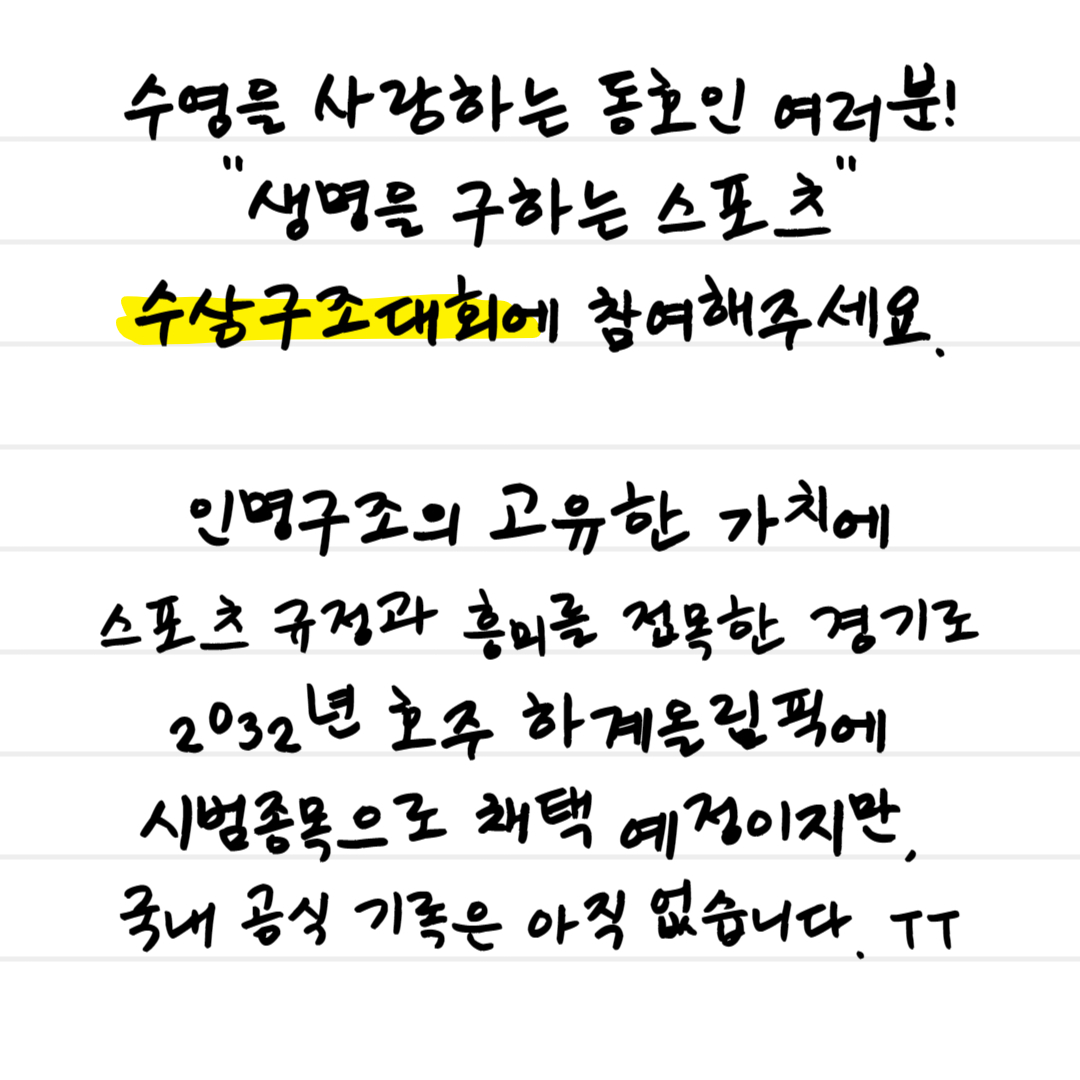 수영을 사랑하는 동호인 여러분!
"생명을 구하는 스포츠"
수상구조대회에 참여해주세요.
인명구조의 고유한 가치에
스포츠 규정과 흥미를 접목한 경기로
2032년 호주 하계올림픽에
시범종목으로 채택 예정이지만,
국내 공식 기록은 아직 없습니다. TT